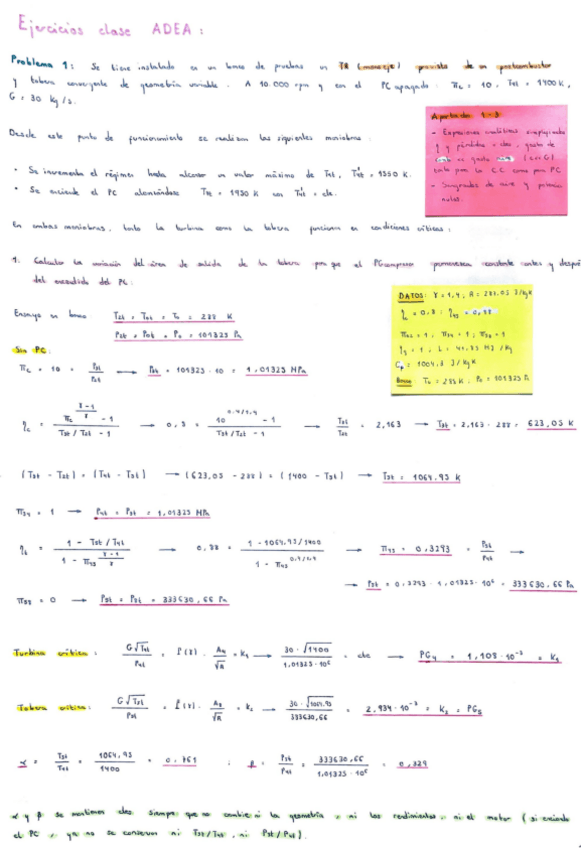 Ejercicios clase ADEA:
Problema 1: Se tiene instalado en un banco de pruebas un TR (monoeje) provisto de un postcombustor
y tobera convergente de geometría variable. A 10.000 rpm y con el PC apagado: πc = 10, T4t = 1400 K,
G = 30 kg/s.
Apartado 1-3
- Expresiones analíticas simplificadas
η y pérdidas = ctes, gasto de
tanto la CC como para PC
- Sangrados de aire y potencia
nulos.
Desde este punto de funcionamiento se realizan las siguientes maniobras:
• Se incrementa el régimen hasta alcanzar un valor máximo de T4t, T4t' = 1550 K.
• Se enciende el PC alcanzándose T7t = 1950 K con T4t' = cte.
En ambas maniobras, tanto la turbina como la tobera funcionan en condiciones críticas:
1. Calcular la variación del área de salida de la tobera para que el PFcompresor permanezca constante antes y después
del encendido del PC:
DATOS: γ = 1,4; R = 287,05 J/kgK
π34 = 1; π58 = 1
L = MJ/kg
Cp = 1004,3 J/kgK
Banco T0 = 288 K; P0 = 101325 Pa
Ensayo en banco T2t = T0t = T0 = 288 K
P2t = P0t = P0 = 101325 Pa
Sin PC:
πc = 10 = P3t/P2t → P3t = 101325 · 10 = 1,01325 MPa
ηc = (πc^((γ-1)/γ) - 1)/(T3t/T2t - 1) → 0,8 = (10^(0,4/1,4) - 1)/(T3t/T2t - 1) → T3t/T2t = 2,163 → T3t = 2,163 · 288 = 623,05 K
(T3t - T2t) = (T4t - T5t) → (623,05 - 288) = (1400 - T5t) → T5t = 1064,95 K
π34 = 1 → P4t = P3t = 1,01325 MPa
ηt = (1 - T5t/T4t)/(1 - π45^((γ-1)/γ)) → 0,88 = (1 - 1064,95/1400)/(1 - π45^(0,4/1,4)) → π45 = 0,3293 = P5t/P4t →
→ P5t = 0,3293 · 1,01325 · 10⁶ = 333630,66 Pa
π58 = 0 → P5t = P8t = 333630,66 Pa
Turbina crítica: G√T4t/P4t = f(γ) · A4/√R = K1 → 30 · √1400/1,01325 · 10⁶ = cte → PG4 = 1,108 · 10⁻³ = K1
Tobera crítica: G√T5t/P5t = f(γ) · A8/√R = K2 → 30 · √1064,95/333630,66 = 2,934 · 10⁻³ = K2 = PG5
α = T5t/T4t = 1064,95/1400 = 0,761 ; β = P5t/P4t = 333630,66/1,01325 · 10⁶ = 0,329
α y β se mantienen ctes siempre que no cambie ni la geometría, ni los rendimientos, ni el motor (si enciendo
el PC, ya no se conservan ni T5t/T4t, ni P5t/P4t).